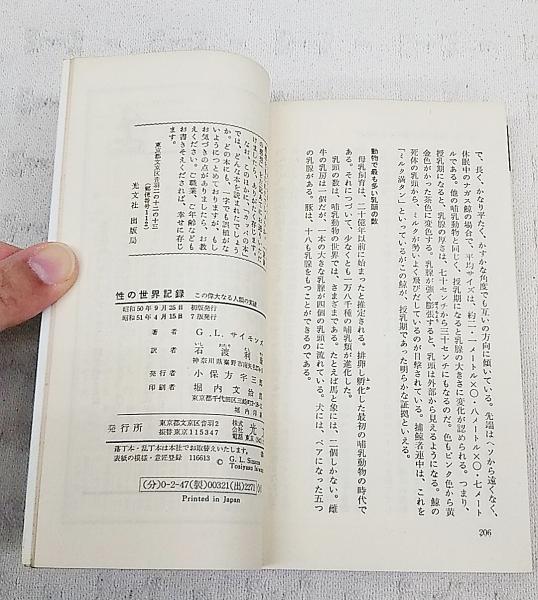 で、長く、かなり平たく、かすかな角度でも互いの方向に傾いている。先端はヘソから遠くなく、
休眠中のナガス鯨の場合で、平均サイズは、約二・一メートル×〇・八メートル×〇・七メート
ルである。他の哺乳動物と同じく、授乳期になると乳腺の大きさに変化が認められる。つまり、
授乳期になると、乳腺の厚さは、七十センチから三十センチにもなるのだ。色もピンク色から黄
金色がかった茶色に変色する。乳腺が強く膨張すると、乳頭は外部から見えるようになる。鯨の
死体の乳頭から、ミルクが勢いよく飛びだしているのが目撃されている。捕鯨者連中は、これを
「ミルク満タン」といっているがこの鯨が、授乳期であった明らかな証拠といえる。
動物で最も多い乳頭の数
母乳飼育は、二十億年以前に始まったと推定される。排卵し孵化した最初の哺乳動物の時代で
ある。それにつづいて、少なくとも一万八千種の哺乳類が進化した。
乳頭の数は、哺乳動物の世界では、さまざまである。たとえば馬と象には、二個しかない。雌
牛の乳房は一個だが、一本の大きな乳腺が四個の乳頭に流れている。犬には、ペアになった五つ
の乳腺がある。豚は、十八も乳腺をもつことができるのである。
206
では、どんな本を読まれたでしょう
か。どの本にも、一字でも誤植がな
いようにつとめておりますが、もし
お気づきの点がありましたら、お教
えください。ご職業、ご年齢なども
お書きそえくだされば、幸せに存じ
ます。
東京都文京区音羽二の十二の十三
(郵便番号112)
光文社 出版局
性の世界記録 この偉大なる人類の実績
昭和50年9月25日 初版発行
昭和51年4月15日 7版発行
著者 G. L. サイモンズ
訳者 石渡利
発行者 小保方宇三郎
印刷者 堀内文治郎
東京都千代田区三崎町
堀内印
発行所 東京都文京区音羽2
振替東京115347
株式会社 光
電話 東京
落丁本・乱丁本は本社でお取替えいたします.
表紙の模様・意匠登録 116613
© G. L. Simons
(分)0-2-47(製)00321(出)2271
Printed in Japan